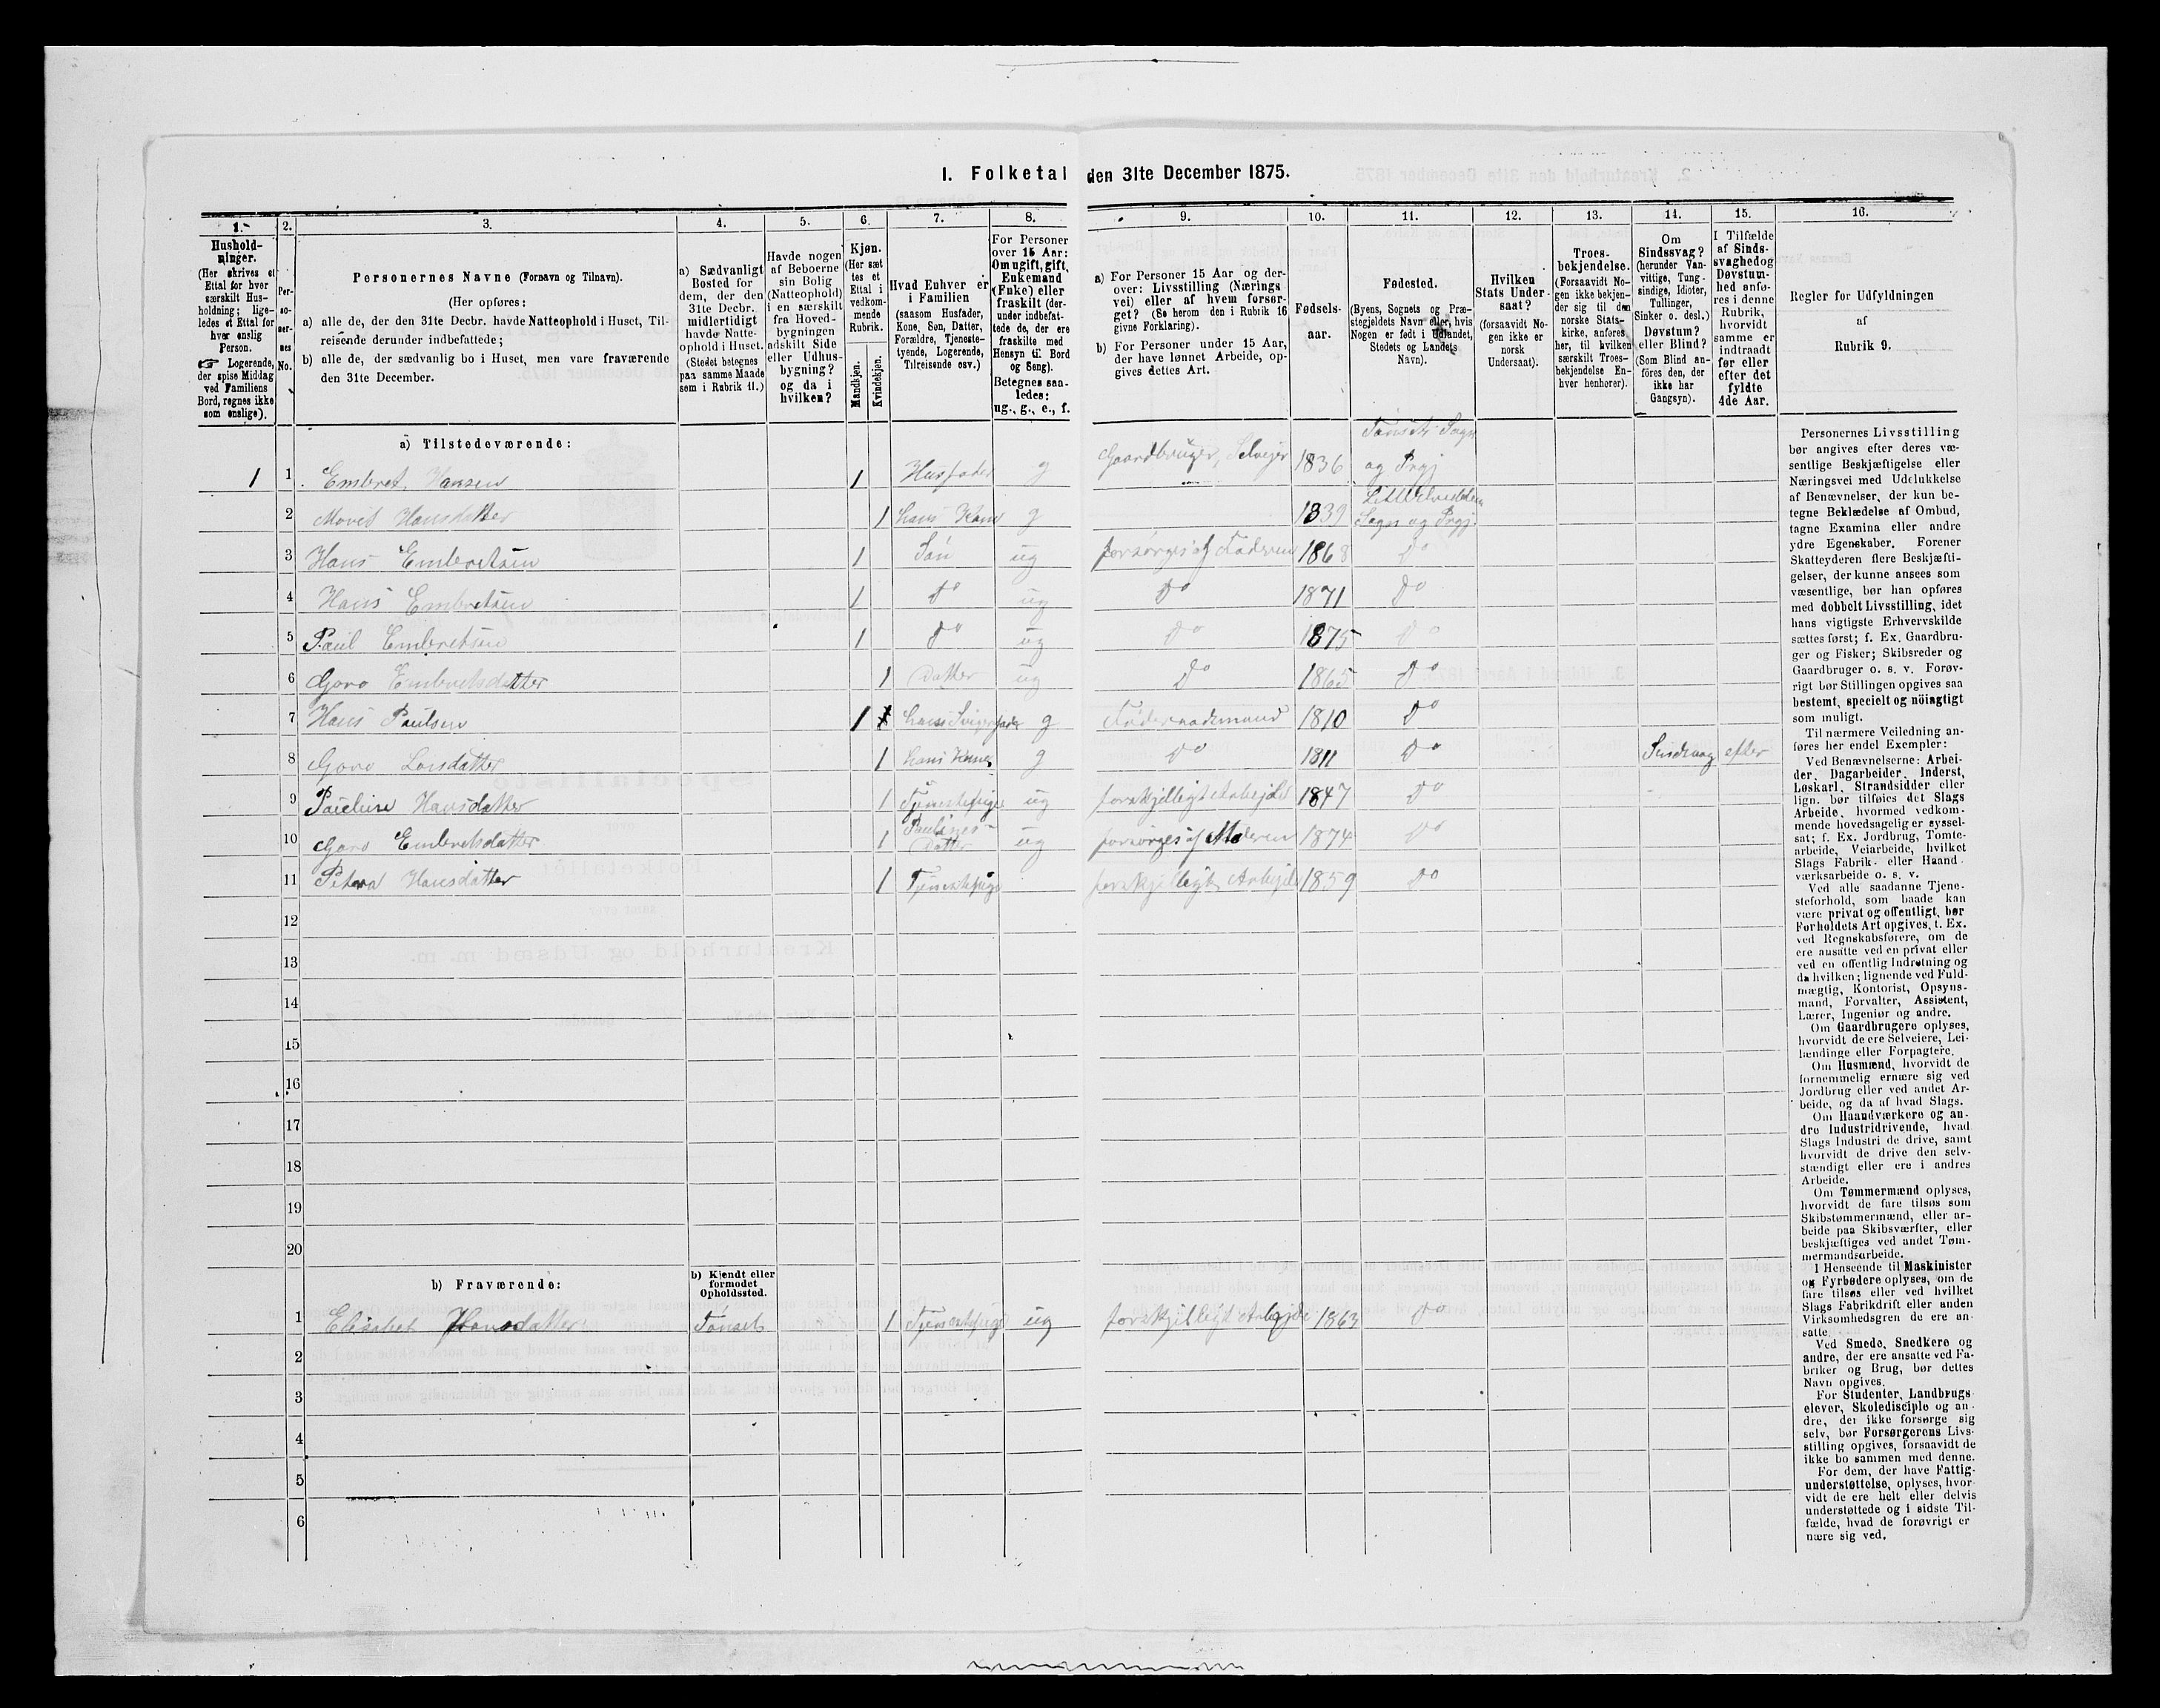 I. Folketal den 31te December 1875.
1. 2. 3. 4. 5. 6. 7. 8. 9. 10. 11. 12. 13. 14. 15. 16.
Hushold-
ninger.
(Her skrives et
Ettal for hver
særskilt Hus-
holdning; lige-
ledes et Ettal for
hver enslig
Person.
☞ Logerende,
der spise Middag
ved Familiens
Bord, regnes ikke
som enslige).
Per-
so-
ner-
nes
No.
Personernes Navne (Fornavn og Tilnavn).
(Her opføres:
a) alle de, der den 31te Decbr. havde Natteophold i Huset, Til-
reisende derunder indbefattede;
b) alle de, der sædvanlig bo i Huset, men vare fraværende
den 31te December.
a) Sædvanligt
Bosted for
dem, der den
31te Decbr.
midlertidigt
havde Natte-
ophold i Huset.
(Stedet betegnes
paa samme Maade
som i Rubrik 11.)
Havde nogen
af Beboerne
sin Bolig
(Natteophold)
i en særskilt
fra Hoved-
bygningen
adskilt Side
eller Udhus-
bygning?
og da i
hvilken?
Kjøn.
(Her sæt
tes et
Ettal i
vedkom-
mende
Rubrik.
Mandkjøn.
Kvindekjøn.
Hvad Enhver er
i Familien
(saasom Husfader,
Kone, Søn, Datter,
Forældre, Tjeneste-
tyende, Logerende,
Tilreisende osv.)
For Personer
over 15 Aar:
Om ugift, gift,
Enkemand
(Enke) eller
fraskilt (der-
under indbefat-
tede de, der ere
fraskilte med
Hensyn til Bord
og Seng).
Betegnes saa-
ledes:
ug., g., e., f.
a) For Personer 15 Aar og der-
over: Livsstilling (Nærings
vei) eller af hvem forsør-
get? (Se herom den i Rubrik 16
givne Forklaring).
b) For Personer under 15 Aar,
der have lønnet Arbeide, op-
gives dettes Art.
Fødsels-
aar.
Fødested.
(Byens, Sognets og Præ-
stegjeldets Navn eller, hvis
Nogen er født i Udlandet,
Stedets og Landets
Navn).
Hvilken
Stats Under-
saat?
(forsaavidt No-
gen ikke er
norsk
Undersaat).
Troes-
bekjendelse.
(Forsaavidt No-
gen ikke bekjen-
der sig til den
norske Stats-
kirke, anføres
her, til hvilken
særskilt Troes-
bekjendelse En-
hver henhører).
Om
Sindssvag?
(herunder Van-
vittige, Tung-
sindige, Idioter,
Tullinger,
Sinker o. desl.)
Døvstum?
eller Blind?
(Som Blind an-
føres den, der
ikke har
Gangsyn).
I Tilfælde
af Sinds-
svaghed og
Døvstum-
hed anfø-
res i denne
Rubrik,
hvorvidt
samme er
indtraadt
før eller
efter det
fyldte
4de Aar.
Regler for Udfyldningen
af
Rubrik 9.
a) Tilstedeværende:
1 1 Embret Hansen 1 Husfader g Gaardbruger, Selvejer 1836 Tönset Sogn og Prgj
2 Marit Hansdatter 1 hans Kone g 1839 Lille Elvedalen Sogn og Prgj.
3 Hans Embretsen 1 Sön ug forsörges af Faderen 1868 Do
4 Hans Embretsen 1 Do ug Do 1871 Do
5 Paul Embretsen 1 Do ug Do 1875 Do
6 Goro Embretsdatter 1 Datter ug Do 1865 Do
7 Hans Paulsen 1 hans Svigerfader g Föderaadsmand 1810 Do
8 Goro Larsdatter 1 hans Kone g Do 1811 Do Sindsvag efter
9 Pauline Hansdatter 1 Tjenestepige ug forskjelligt Arbejde 1847 Do
10 Goro Embretsdatter 1 Paulines Datter ug forsörges af Moderen 1874 Do
11 Petra Hansdatter 1 Tjenestepige forskjelligt Arbejde 1859 Do
12
13
14
15
16
17
18
19
20
b) Fraværende:
b) Kjendt eller
formodet
Opholdssted.
1 Elisabet Hansdatter Tönset 1 Tjenestepige ug forskjelligt Arbejde 1863 Do
2
3
4
5
6
Personernes Livsstilling
bør angives efter deres væ-
sentlige Beskjæftigelse eller
Næringsvei med Udelukkelse
af Benævnelser, der kun be-
tegne Beklædelse af Ombud,
tagne Examina eller andre
ydre Egenskaber. Forener
Skatteyderen flere Beskjæfti-
gelser, der kunne ansees som
væsentlige, bør han opføres
med dobbelt Livsstilling, idet
hans vigtigste Erhvervskilde
sættes først; f. Ex. Gaardbru-
ger og Fisker; Skibsreder og
Gaardbruger o. s. v. Forøv-
rigt bør Stillingen opgives saa
bestemt, specielt og nöiagtigt
som muligt.
Til nærmere Veiledning an-
føres her endel Exempler:
Ved Benævnelserne: Arbei-
der, Dagarbeider, Inderst,
Løskarl, Strandsidder eller
lign. bør tilføies det Slags
Arbeide, hvormed vedkom-
mende hovedsagelig er syssel-
sat; f. Ex. Jordbrug, Tomte-
arbeide, Veiarbeide, hvilket
Slags Fabrik- eller Haand-
værksarbeide o. s. v.
Ved alle saadanne Tjene-
steforhold, som baade kan
være privat og offentligt, bør
Forholdets Art opgives, t. Ex.
ved Regnskabsførere, om de
ere ansatte ved en privat eller
ved en offentlig Indretning og
da hvilken; lignende ved Fuld-
mægtig, Kontorist, Opsyns-
mand, Forvalter, Assistent,
Lærer, Ingeniør og andre.
Om Gaardbrugere oplyses,
hvorvidt de ere Selveiere, Lei-
lændinge eller Forpagtere.
Om Husmænd, hvorvidt de
fornemmelig ernære sig ved
Jordbrug eller ved andet Ar-
beide, og da af hvad Slags.
Om Haandværkere og an-
dre Industridrivende, hvad
Slags Industri de drive, samt
hvorvidt de drive den selv-
stændigt eller ere i andres
Arbeide.
Om Tømmermænd oplyses,
hvorvidt de fare tilsøs som
Skibstømmermænd, eller ar-
beide paa Skibsværfter, eller
beskjæftiges ved andet Tøm-
mermandsarbeide.
I Henseende til Maskinister
og Fyrbødere oplyses, om de
fare tilsøs eller ved hvilket
Slags Fabrikdrift eller anden
Virksomhedsgren de ere an-
satte.
Ved Smede, Snedkere og
andre, der ere ansatte ved Fa-
briker og Brug, bør dettes
Navn opgives.
For Studenter, Landbrugs-
elever, Skoledisciple og an-
dre, der ikke forsørge sig
selv, bør Forsørgerens Livs-
stilling opgives, forsaavidt de
ikke bo sammen med denne.
For dem, der have Fattig-
understøttelse, oplyses, hvor-
vidt de ere helt eller delvis
understøttede og i sidste Til-
fælde, hvad de forøvrigt er
nære sig ved.